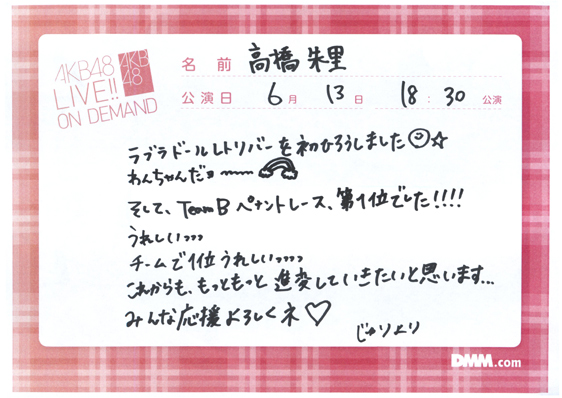 AKB48
LIVE!!
ON DEMAND
AKB
48
名前 高橋朱里
公演日 6月 13日 18:30 公演
ラブラドールレトリバーを初ひろうしました☆
わんちゃんだョ〜〜
そして、Team B ペナントレース、第1位でした!!!!
うれしいっっっ
チームで1位うれしいっっっっ
これからも、もっともっと進変していきたいと思います...
みんな応援よろしくネ♡
じゅりより
DMM.com